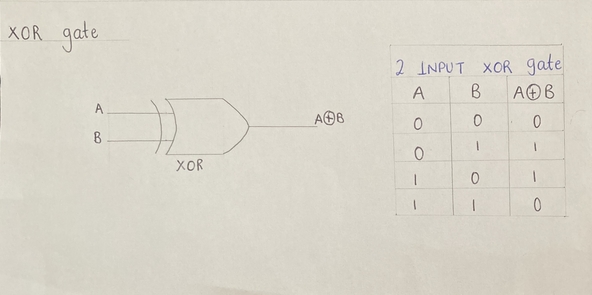 XOR gate
A
B
A⊕B
XOR
2 INPUT XOR gate
A B A⊕B
0 0 0
0 1 1
1 0 1
1 1 0